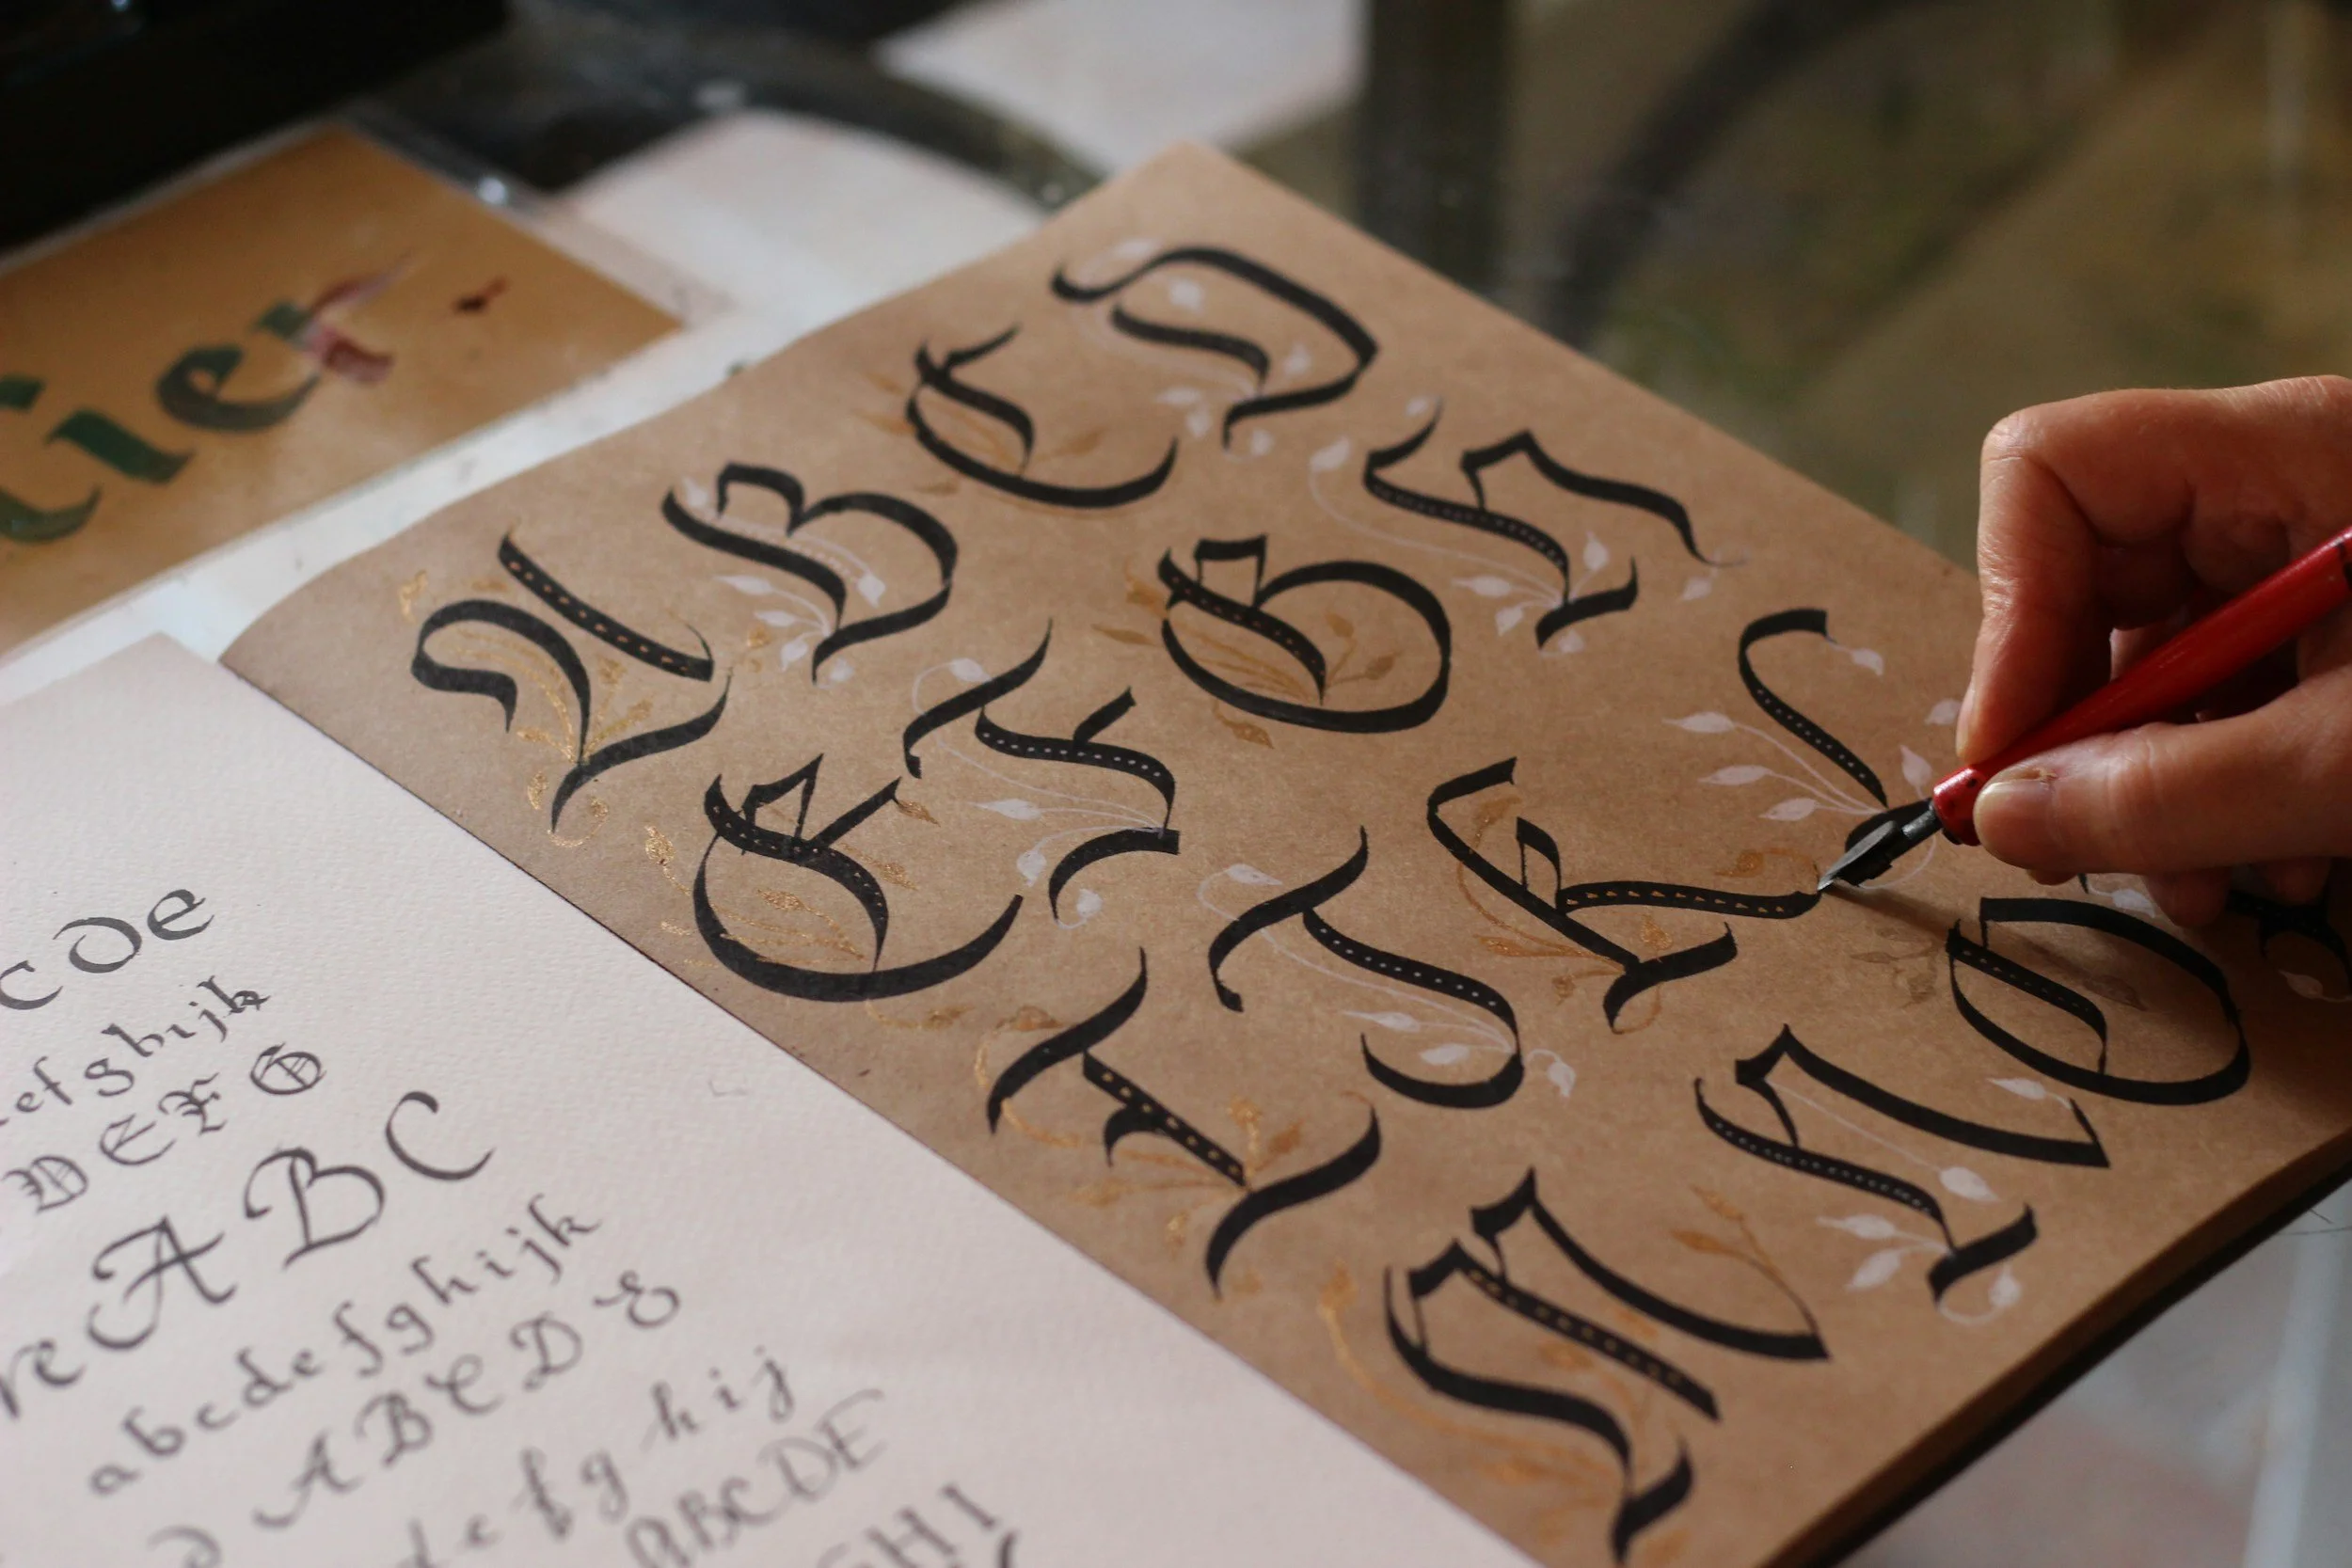 tier
A B C D
E F G H
I J K L
M N O
C D e
e f g h i j k
D E F G
A B C
a b c d e f g h i j k
A B C D E
d e f g h i j
A B C D E
G H I